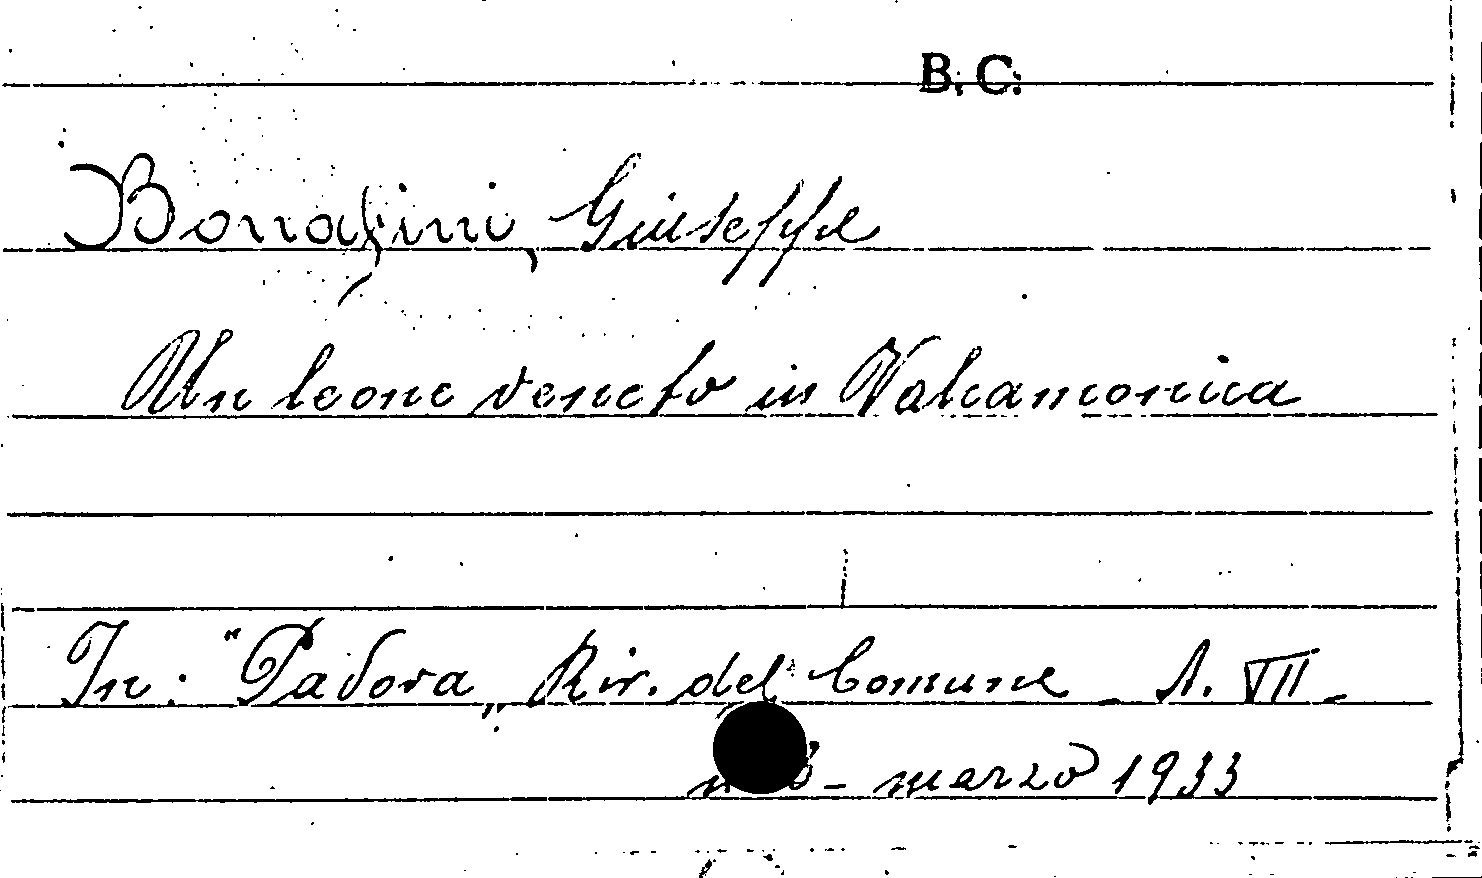 B. C.
Bonafini, Giuseppe
Un leone veneto in Valcamonica
In: "Padova„ Riv. del Comune - A. VII -
marzo 1933